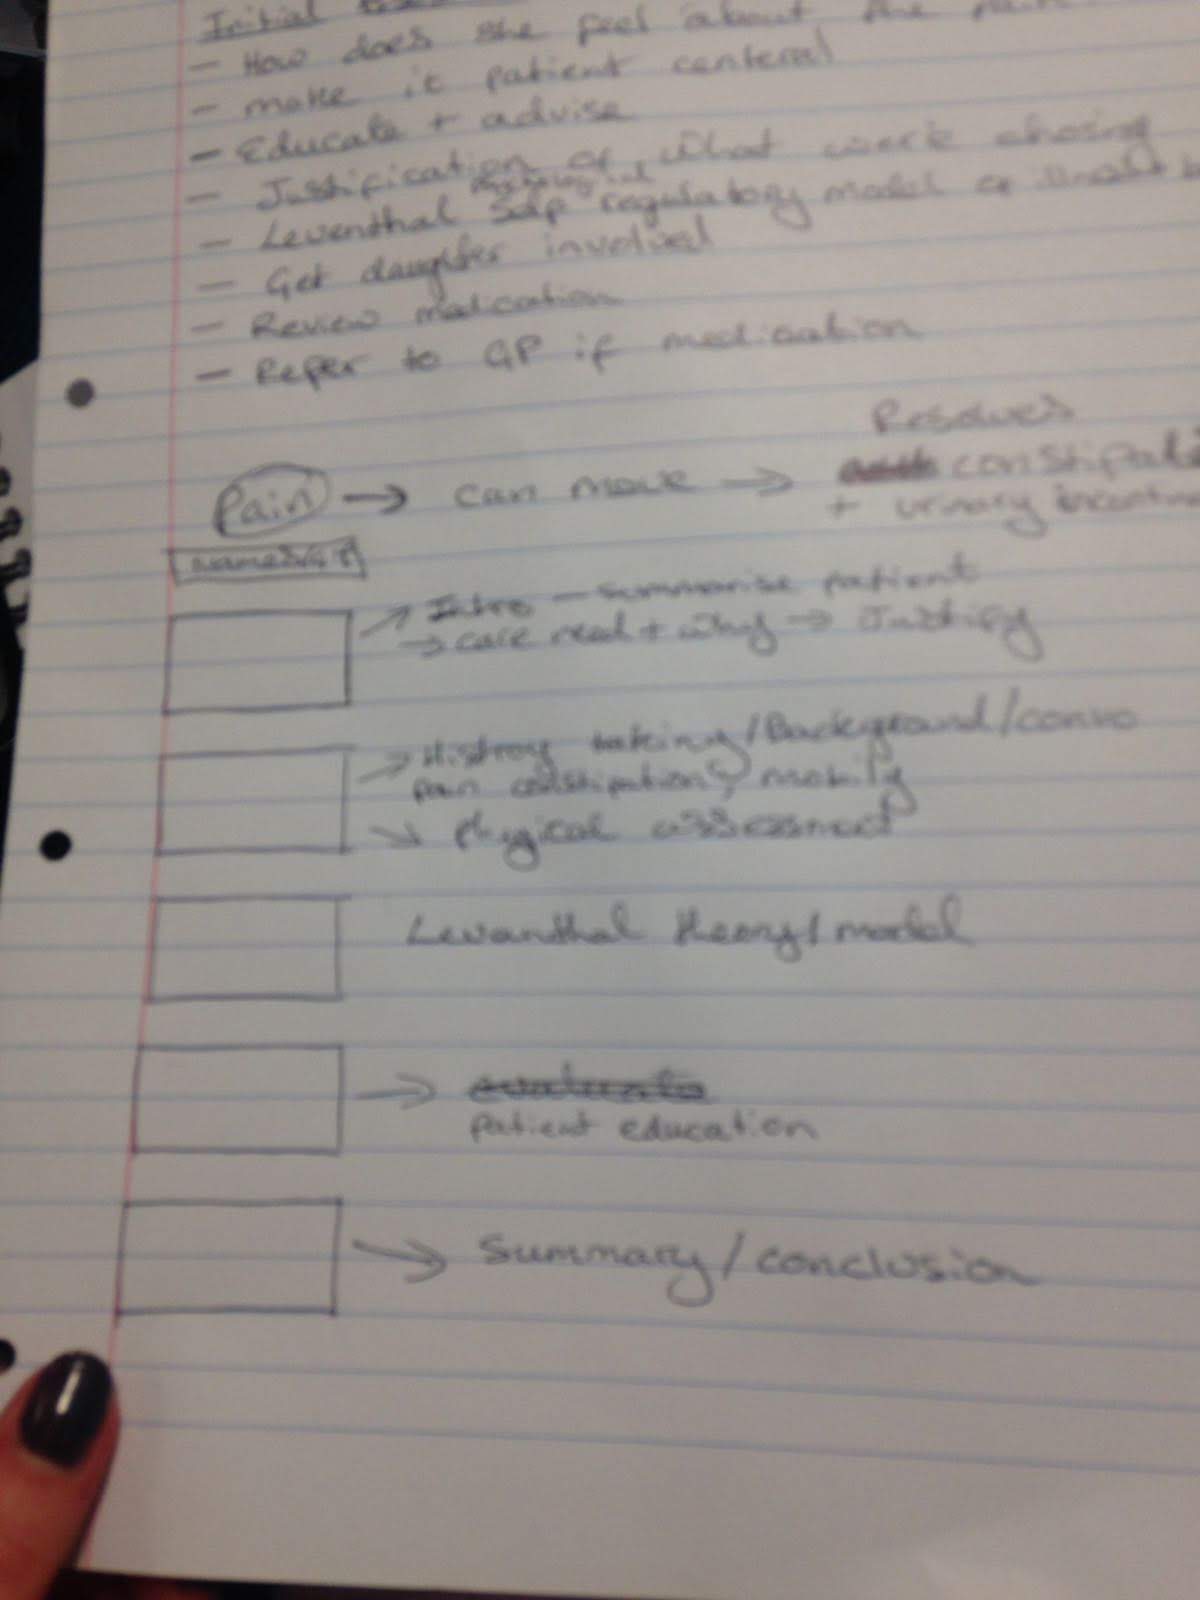 Initial
- How does she feel about the pain
- make it patient centeral
- Educate + advise
- Justification of what work chosing
- Leventhal Self regulatory model of illness
- Get daughter involved
- Review medication
- Refer to GP if medication
Resolves
Pain → can move → constipati
+ urinary incontin
Intro - summarise patient
→ care need + why → Justify
→ Histroy taking / Background / convo
pain constipation, mobility
physical assessment
Levanthal theory / model
→
patient education
→ Summary / conclusion